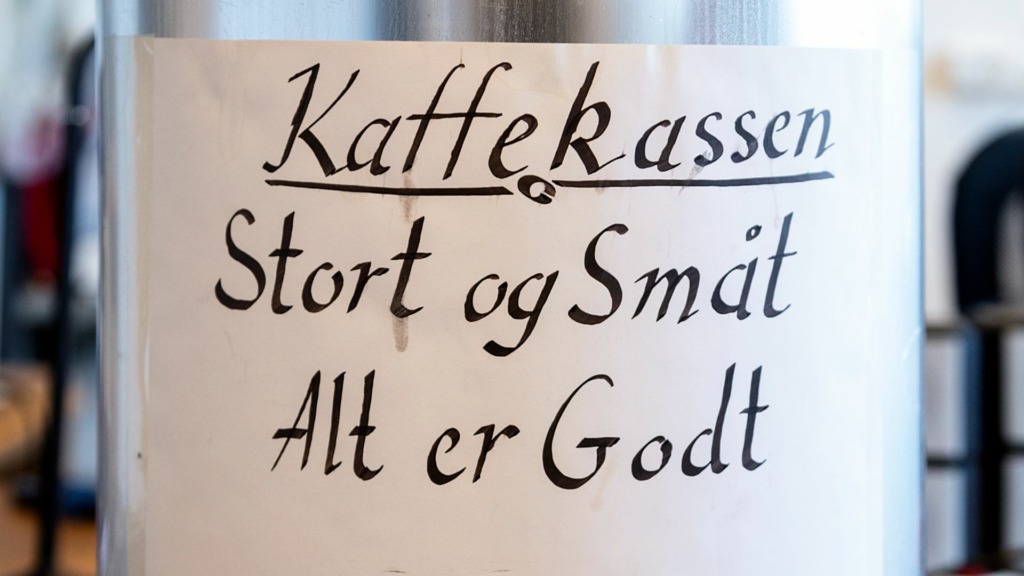 Kaffekassen
Stort og Småt
Alt er Godt